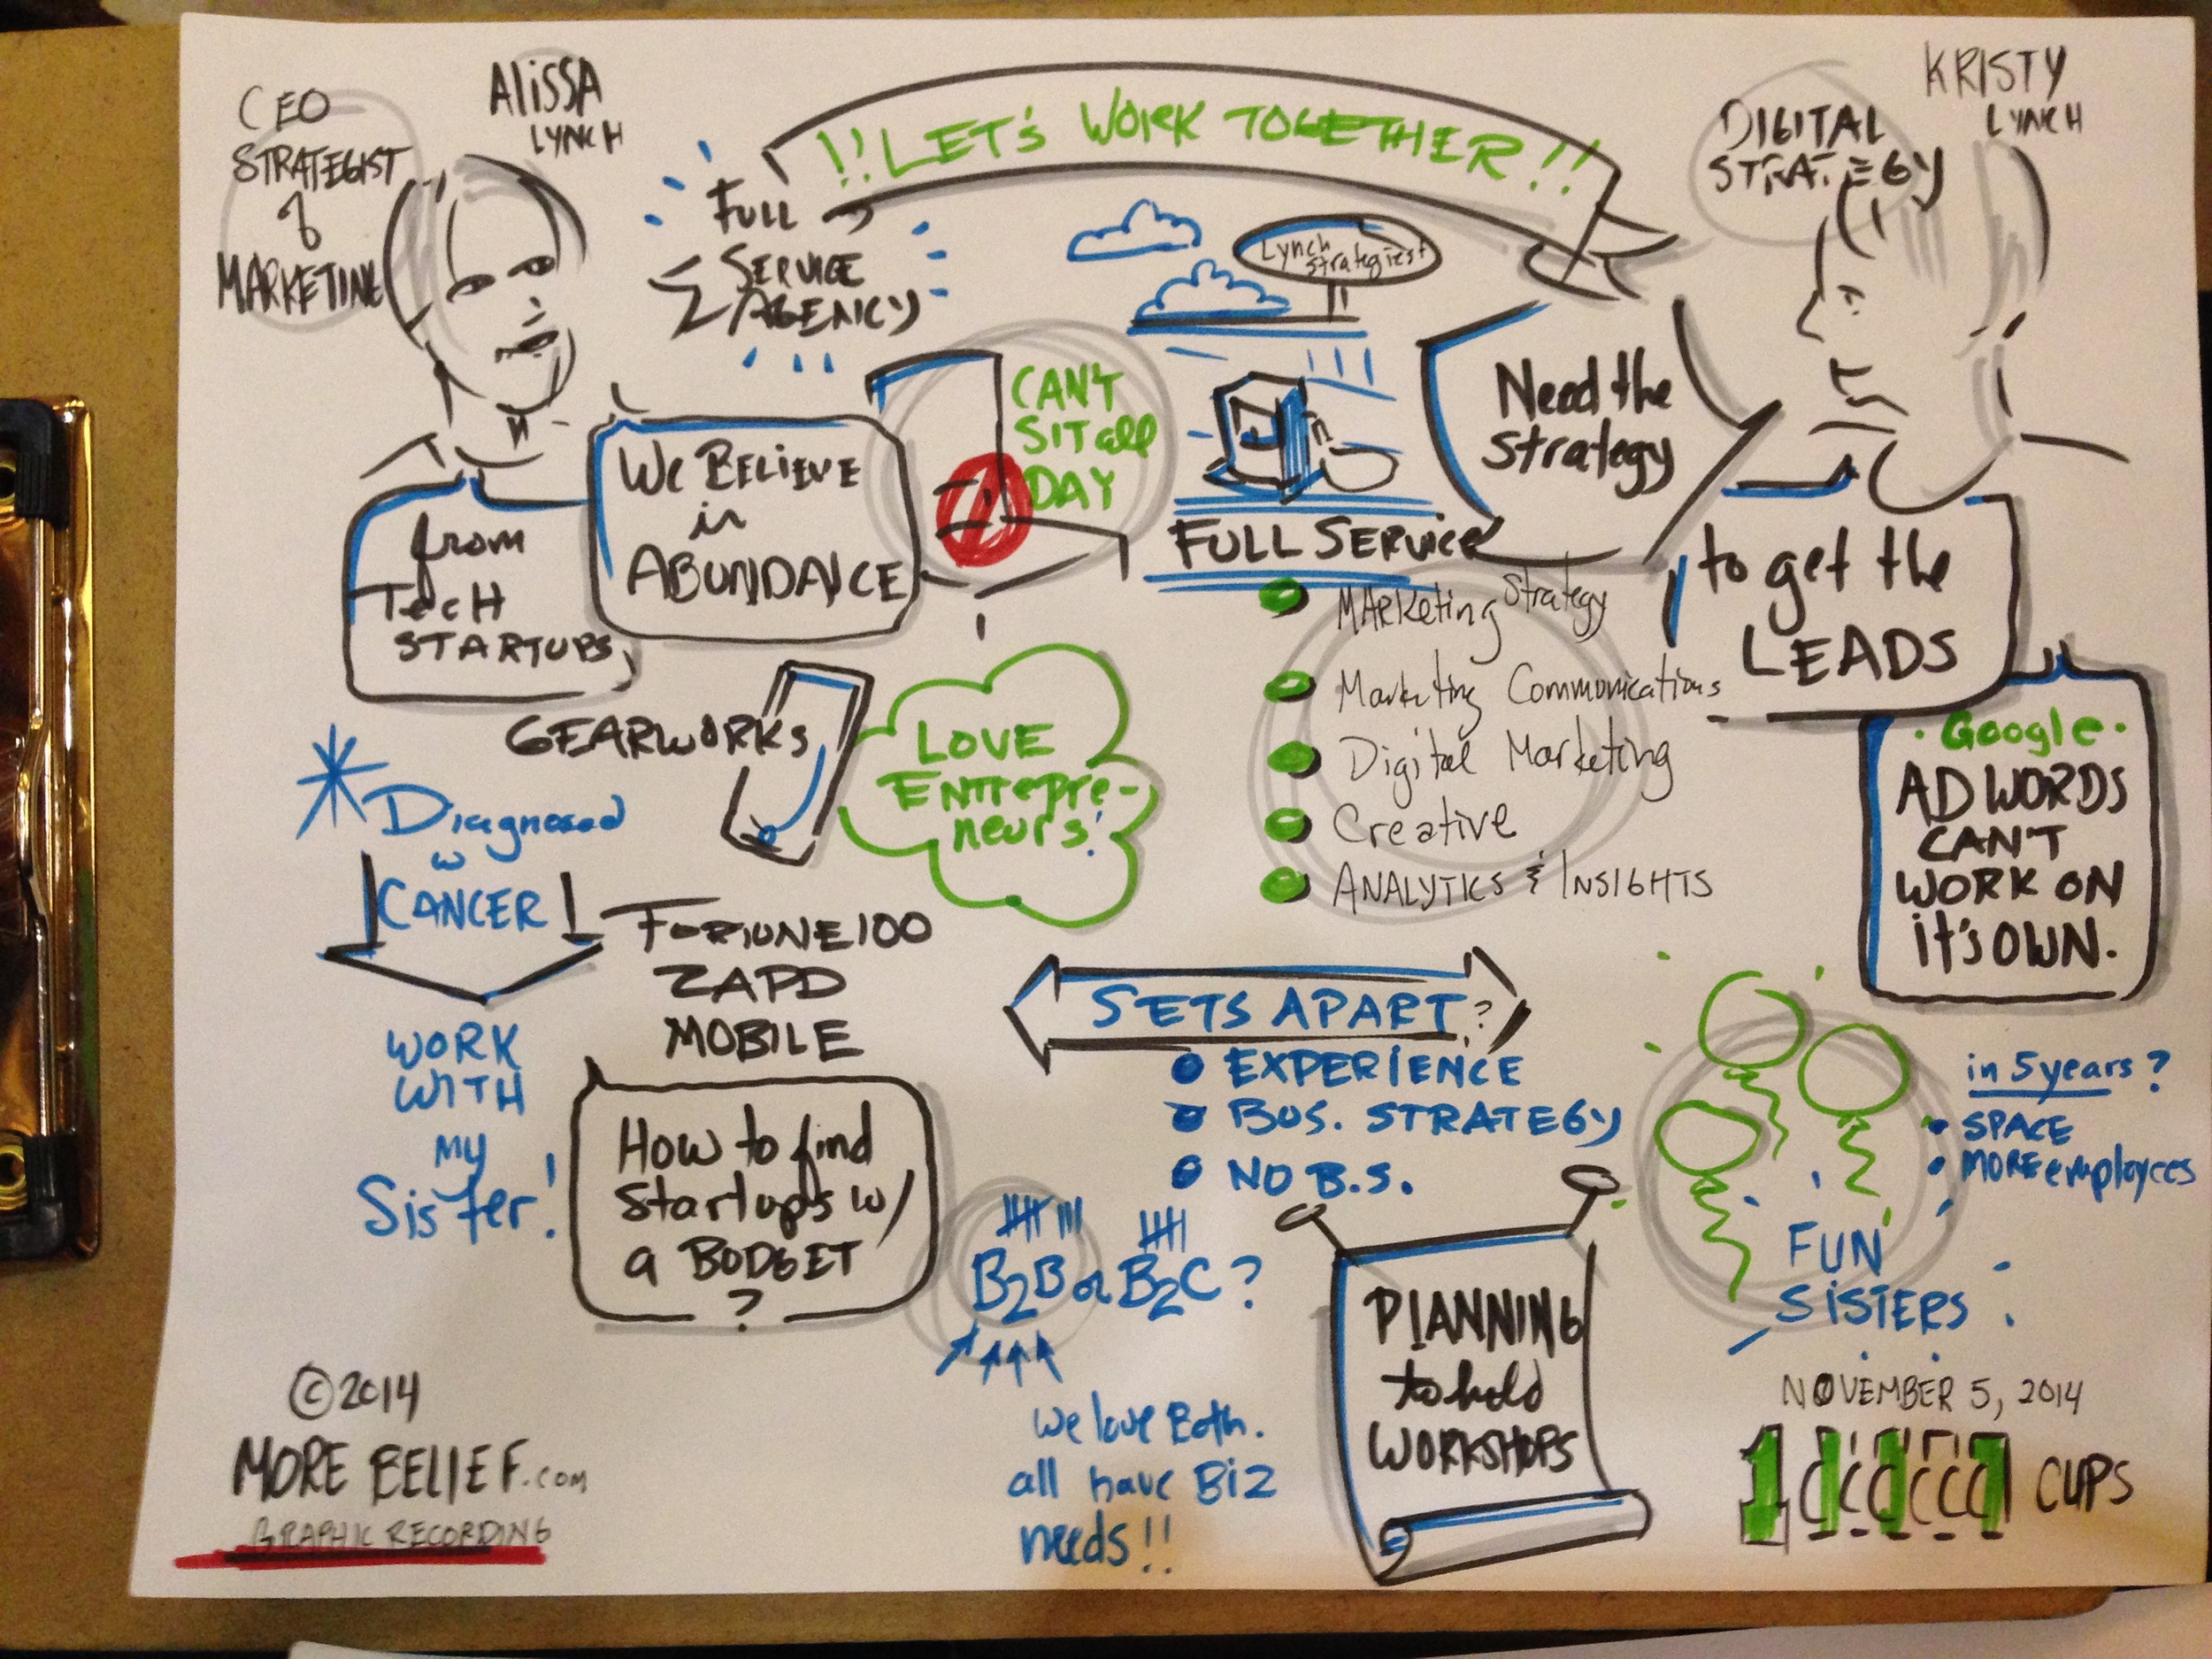 CEO
STRATEGIST
&
MARKETING
ALISSA
LYNCH
!!LET'S WORK TOGETHER!!
KRISTY
LYNCH
DIGITAL
STRATEGY
FULL
SERVICE
AGENCY
Lynch
strategiest
CAN'T
SIT all
DAY
Need the
strategy
We BELIEVE
in
ABUNDANCE
from
TECH
STARTUPS,
FULL SERVICE
MARKeting Strategy
Marketing Communications
Digital Marketing
Creative
ANALYTICS & INSIGHTS
to get the
LEADS
Google
AD WORDS
CAN'T
WORK ON
it's OWN.
GEARWORKS
LOVE
ENTrepre-
neurs!
Diagnosed
w
CANCER!
FORTUNE 100
ZAPD
MOBILE
WORK
WITH
MY
Sister!
SETS APART?
EXPERIENCE
BUS. STRATEGY
NO B.S.
in 5 years?
SPACE
MORE employees
HOW to find
Startups w/
a BUDGET
?
B2B or B2C?
we love Both.
all have Biz
needs!!
PLANNING
to hold
WORKSHOPS
FUN
SISTERS
NOVEMBER 5, 2014
1 CUPS
©2014
MORE BELIEF.com
GRAPHIC RECORDING